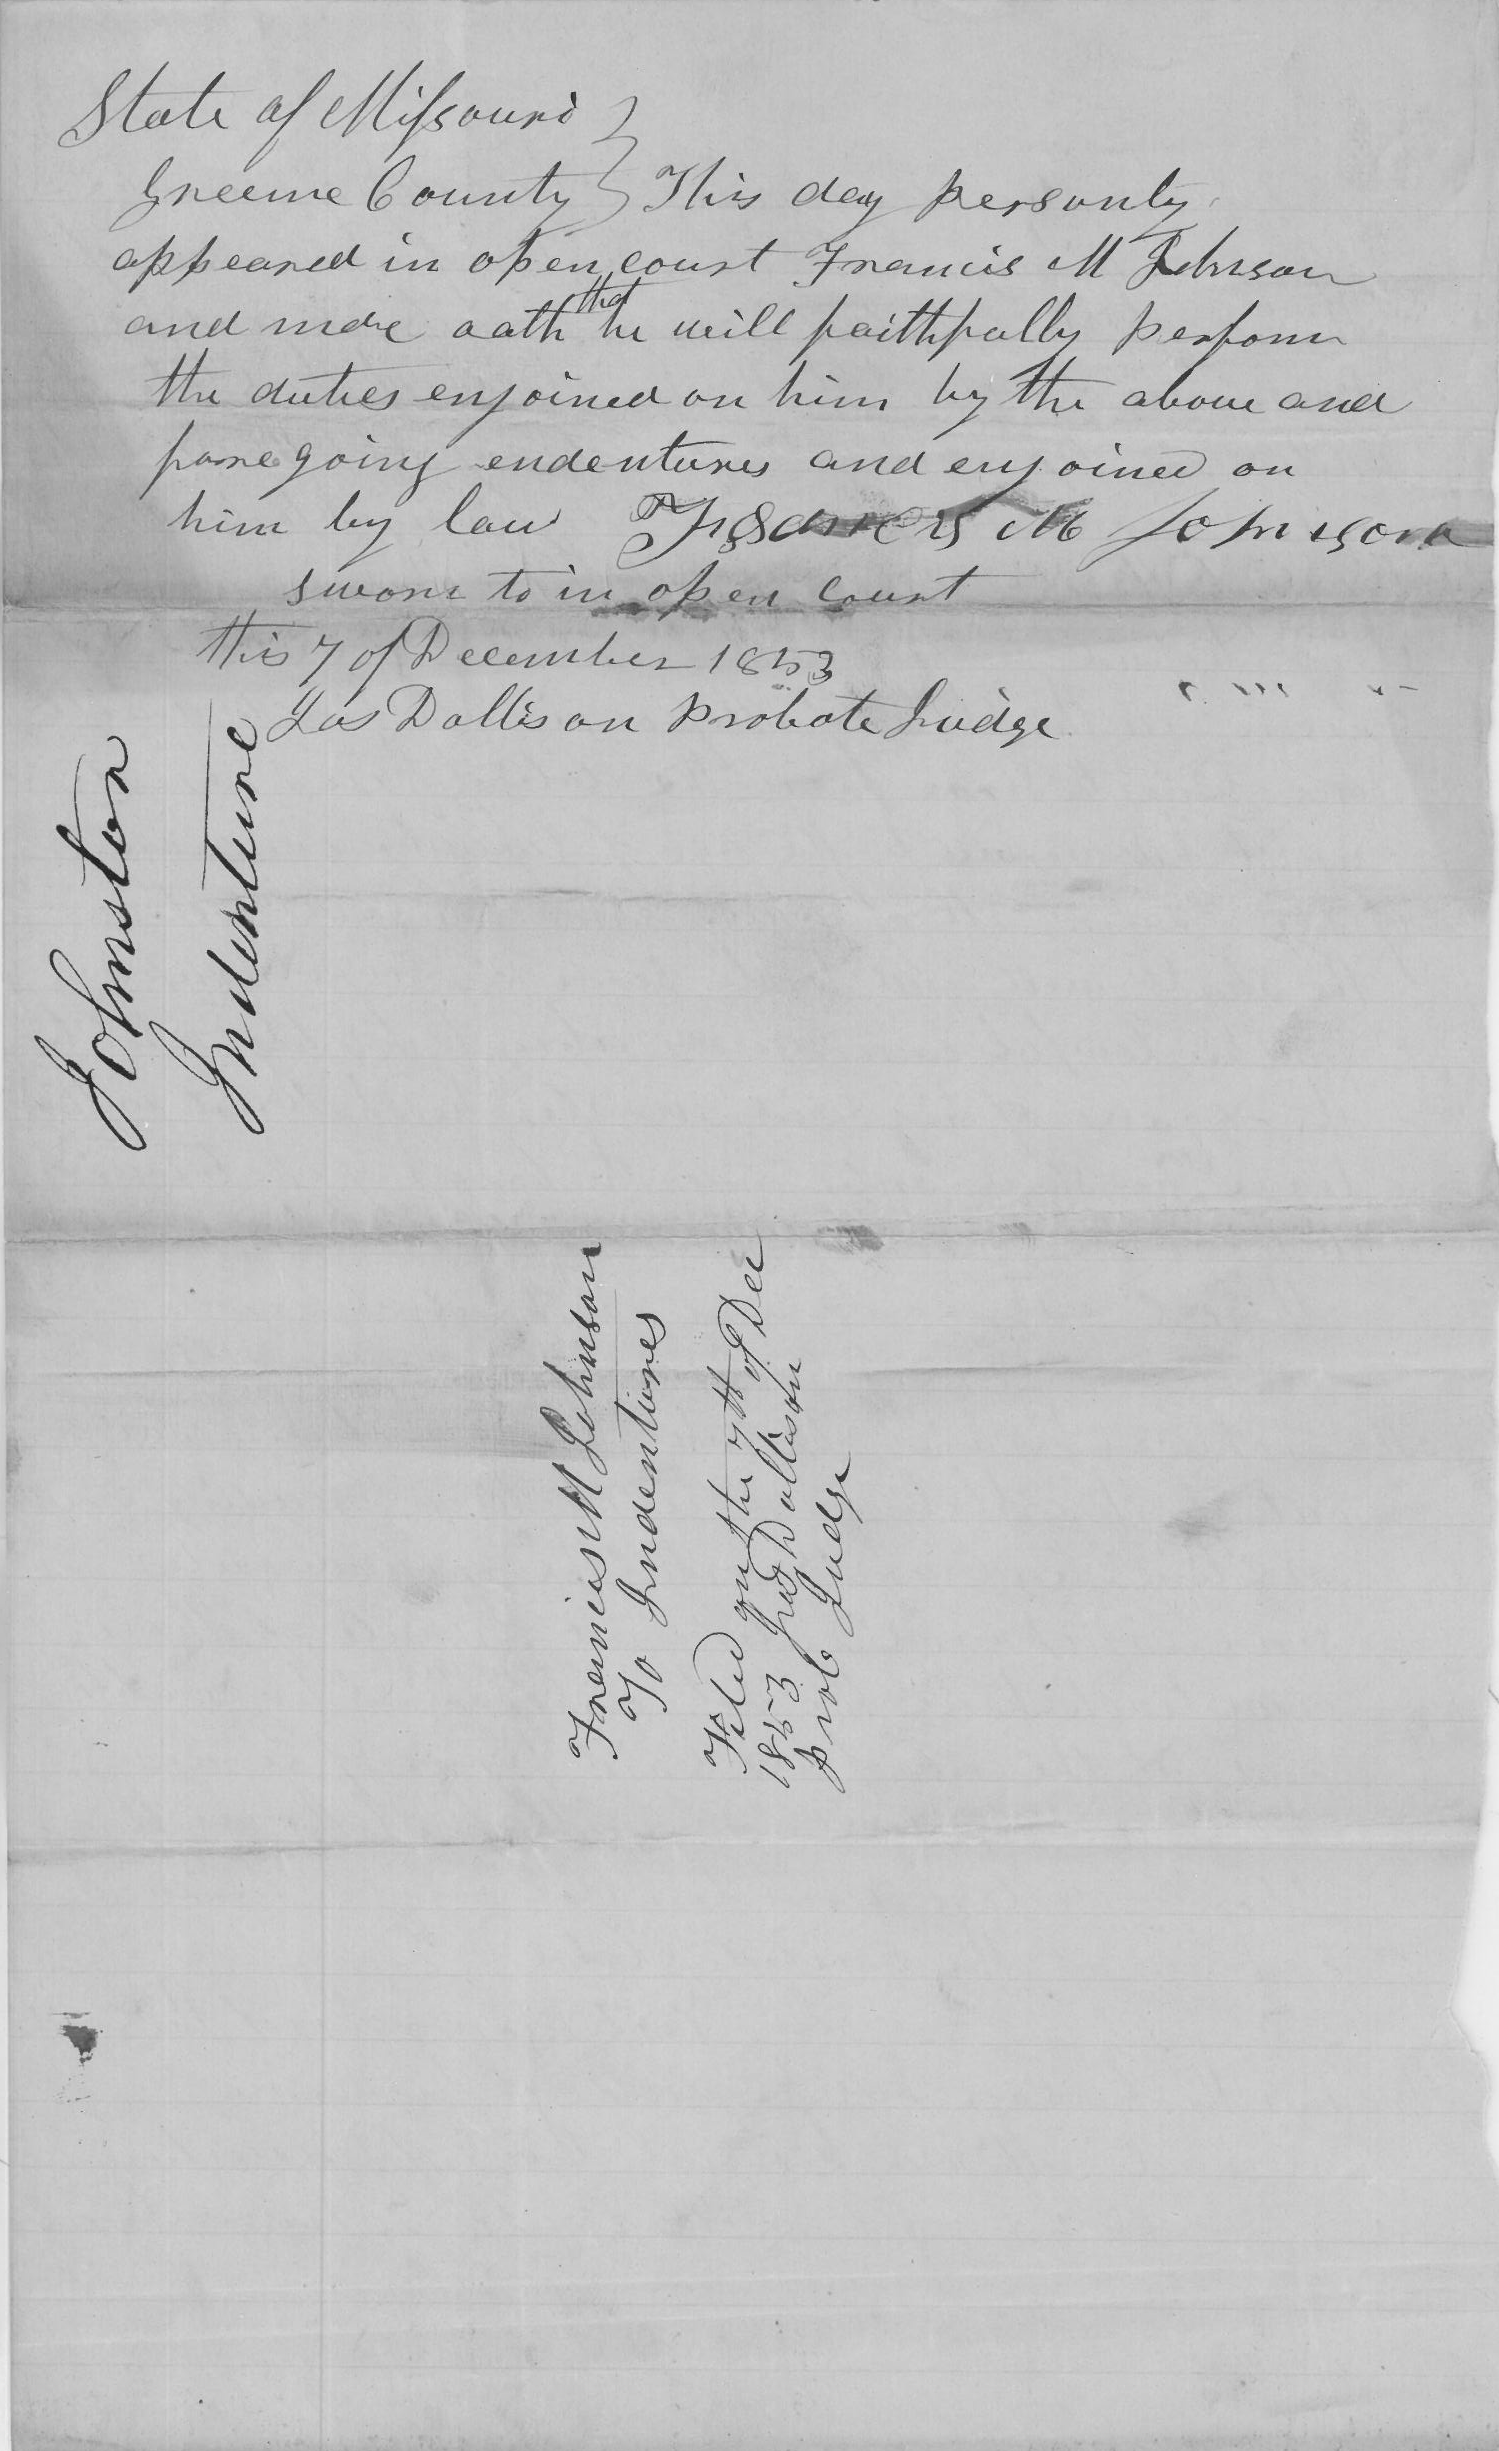 State of Missouri }
Greene County } This day personly
appeared in open court Francis M Johnson
and made oath that he will faithfully perform
the duties enjoined on him by the above and
foregoing endentures and enjoined on
him by law Francis M Johnson
sworn to in open court
this 7 of December 1853
Jas Dollison Probate Judge
Johnston
Indenture
Francis M Johnson
To Indentures
Filed on the 7th of Dec
1853 Jas Dollison
Prob Judge